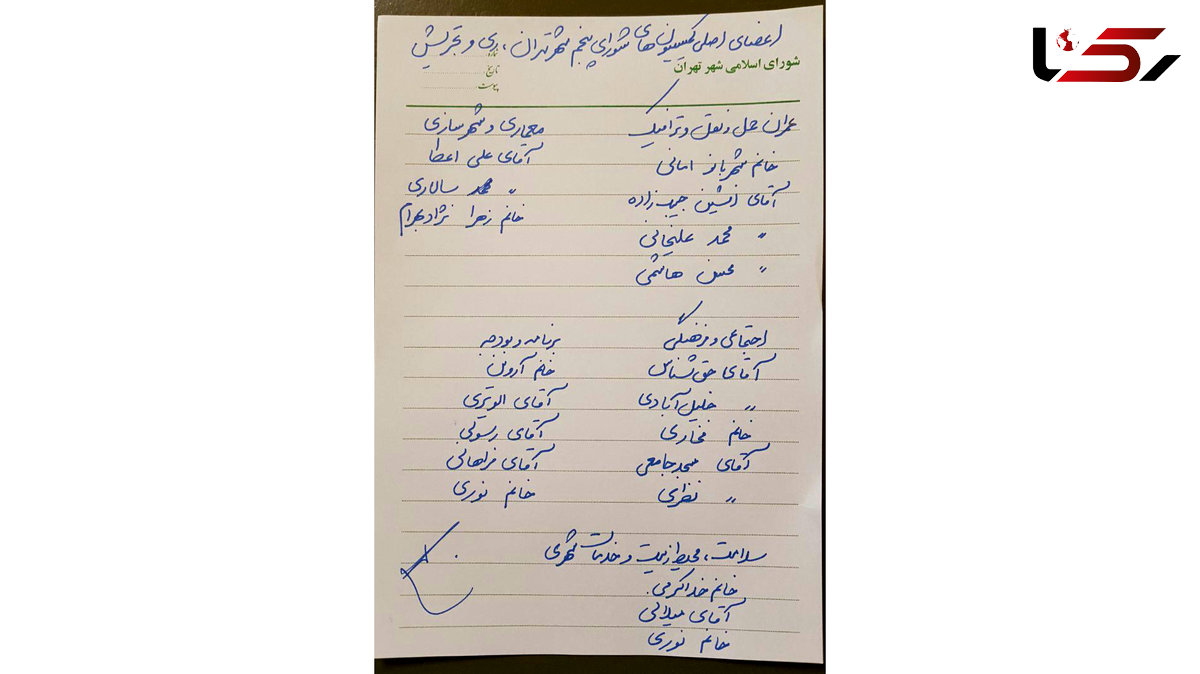 رکنا
اعضای اصلی کمیسیون های شورای پنجم شهر تهران، ری و تجریش
شورای اسلامی شهر تهران
تاریخ
پیوست
عمران حمل و نقل و ترافیک
خانم شهربانو امانی
آقای افشین حبیب زاده
" محمد علیخانی
" محسن هاشمی
معماری و شهرسازی
آقای علی اعطا
" محمد سالاری
خانم زهرا نژاد بهرام
اجتماعی و فرهنگی
آقای حق شناس
" خلیل آبادی
خانم فخاری
آقای مسجد جامعی
" نظری
برنامه و بودجه
خانم آروین
آقای الویری
آقای رسولی
آقای فراهانی
خانم نوری
سلامت، محیط زیست و خدمات شهری
خانم خداکرمی
آقای میلانی
خانم نوری